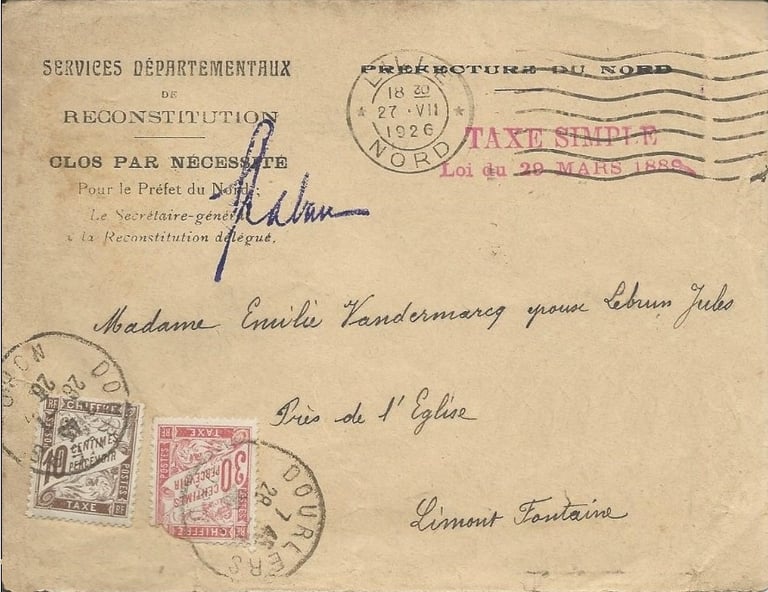 SERVICES DÉPARTEMENTAUX
DE
RECONSTITUTION
CLOS PAR NÉCESSITÉ
Pour le Préfet du Nord:
Le Secrétaire-général
à la Reconstitution délégué.
PREFECTURE DU NORD
LILLE
18 30
27 · VII
1926
NORD
TAXE SIMPLE
Loi du 29 MARS 1889
Madame Emilie Vandermarcq epouse Lebrun Jules
Près de l'Eglise
Limont Fontaine
NORD
DO
28
CHIFFRE
10
CENTIMES
PERCEVOIR
POSTES
RF
TAXE
RF
TAXE
POSTES
RF
30
CENTIMES
PERCEVOIR
CHIFFRE
DOURLERS
28
7 45